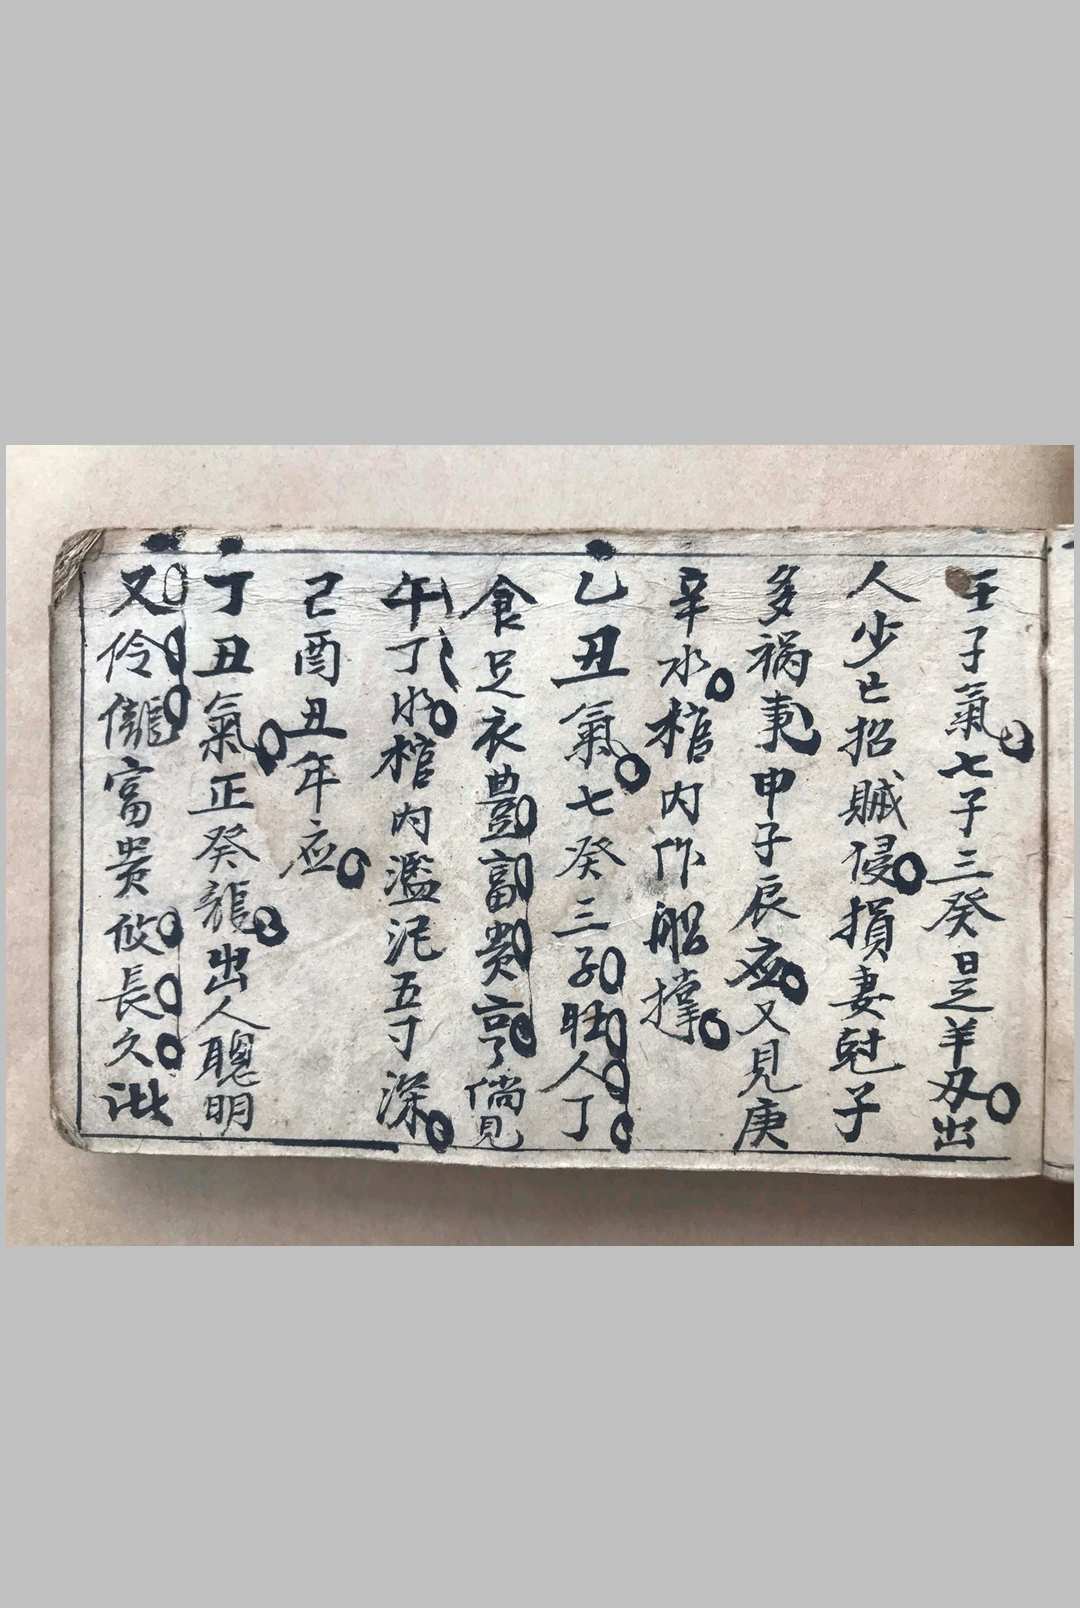 壬子氣七子三癸是羊刃出
人少亡招賊侵損妻尅子
多禍事甲子辰应又見庚
辛水棺内作船撑
乙丑氣七癸三子旺人丁
食足衣豊富贵亨倘見
午丁水棺内濫泥五寸深
己酉丑年应
丁丑氣正癸龍出人聰明
又伶儱富贵攸長久此